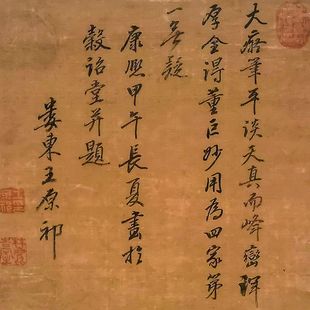 大癡筆平淡天真而峰巒渾
厚全得董巨妙用為四家第
一無疑
康熙甲午長夏畫於
穀詒堂并題
婁東王原祁